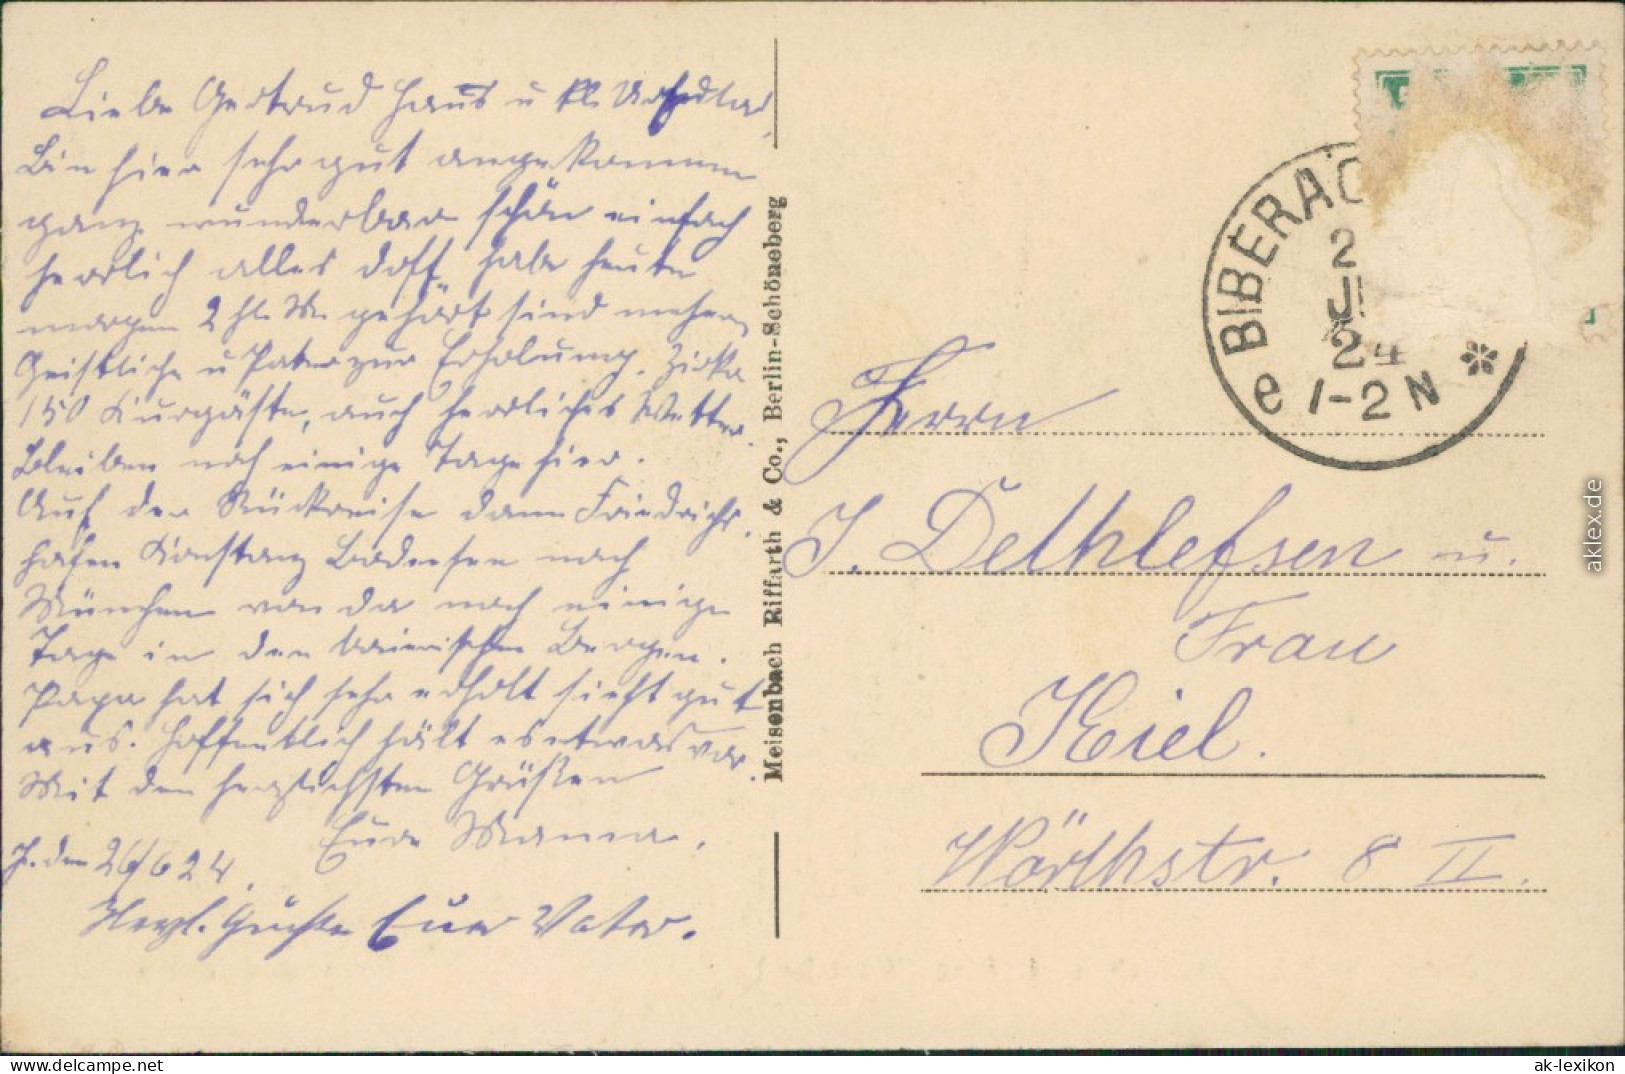 Liebe Gertrud Hans u kl.
Bin hier sehr gut angekommen
ganz wunderbar schön einfach
herrlich alles dort habe heute
morgen 2 hl. M. gehört sind mehrere
Geistliche u Pater zur Erholung. Zirka
150 Kurgäste, auch herrliches Wetter.
bleiben noch einige Tage hier.
Auf der Rückreise dann Friedrichs
hafen Konstanz Bodensee nach
München von da noch einige
Tage in den baierischen Bergen.
Papa hat sich sehr erholt sieht gut
aus. Hoffentlich hält es etwas vor.
Mit den herzlichsten Grüßen
Eure Mama.
J. den 26/6 24.
Herzl. Grüße Euer Vater.
Meisenbach Riffarth & Co., Berlin-Schöneberg
BIBERAC
2
JU
24
1-2 N
e
Herrn
J. Dethlefsen u.
Frau
Kiel.
Wörthstr. 8 II.
aklex.de
https://www.ansichtskarten-lexikon.de
ak-lexikon